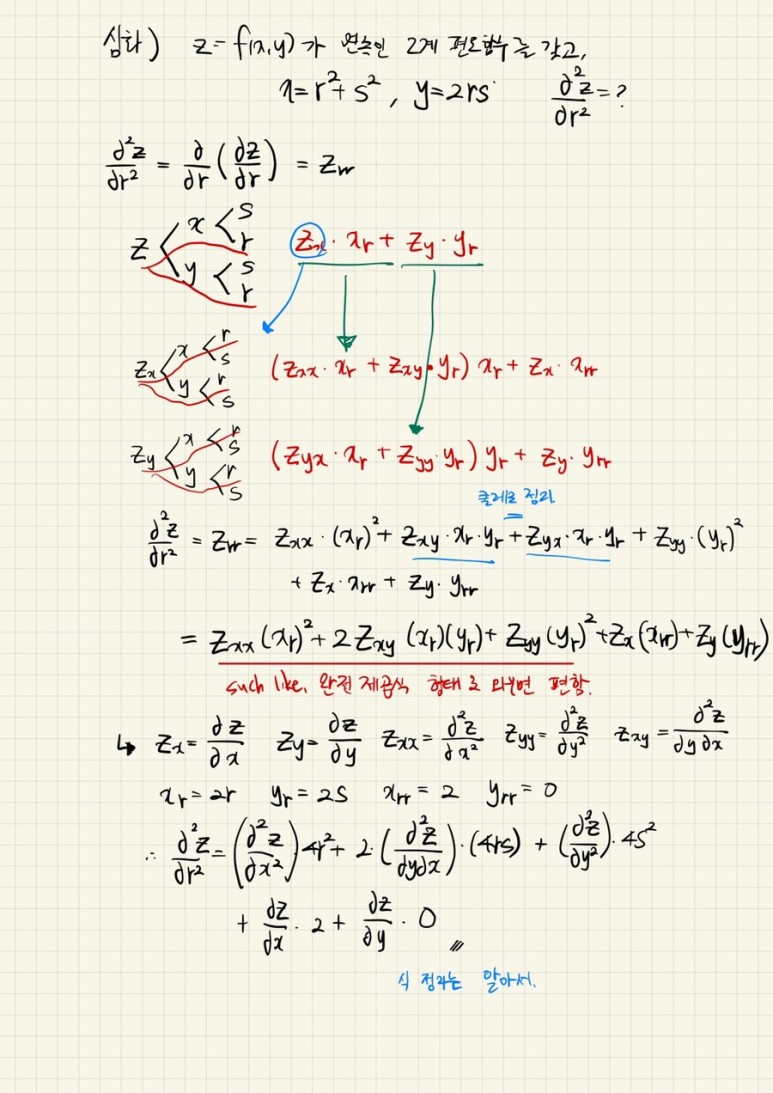 심화) z=f(x,y)가 연속인 2계 편도함수를 갖고,
x=r²+s², y=2rs ∂²z/∂r²=?
∂²z/∂r² = ∂/∂r(∂z/∂r) = Zrr
z < x < s r
y < s r
Zx · xr + Zy · yr
Zx < x < r s
y < r s
(Zxx · xr + Zxy · yr) xr + Zx · xrr
Zy < x < r s
y < r s
(Zyx · xr + Zyy · yr) yr + Zy · yrr
클레로 정리
∂²z/∂r² = Zrr = Zxx · (xr)² + Zxy · xr · yr + Zyx · xr · yr + Zyy · (yr)²
+ Zx · xrr + Zy · yrr
= Zxx (xr)² + 2Zxy (xr)(yr) + Zyy (yr)² + Zx(xrr) + Zy(yrr)
such like, 완전 제곱식 형태로 외우면 편함.
↳ Zx = ∂z/∂x Zy = ∂z/∂y Zxx = ∂²z/∂x² Zyy = ∂²z/∂y² Zxy = ∂²z/∂y∂x
xr = 2r yr = 2s xrr = 2 yrr = 0
∴ ∂²z/∂r² = (∂²z/∂x²) 4r² + 2 · (∂²z/∂y∂x) · (4rs) + (∂²z/∂y²) · 4s²
+ ∂z/∂x · 2 + ∂z/∂y · 0
식 정리는 알아서.